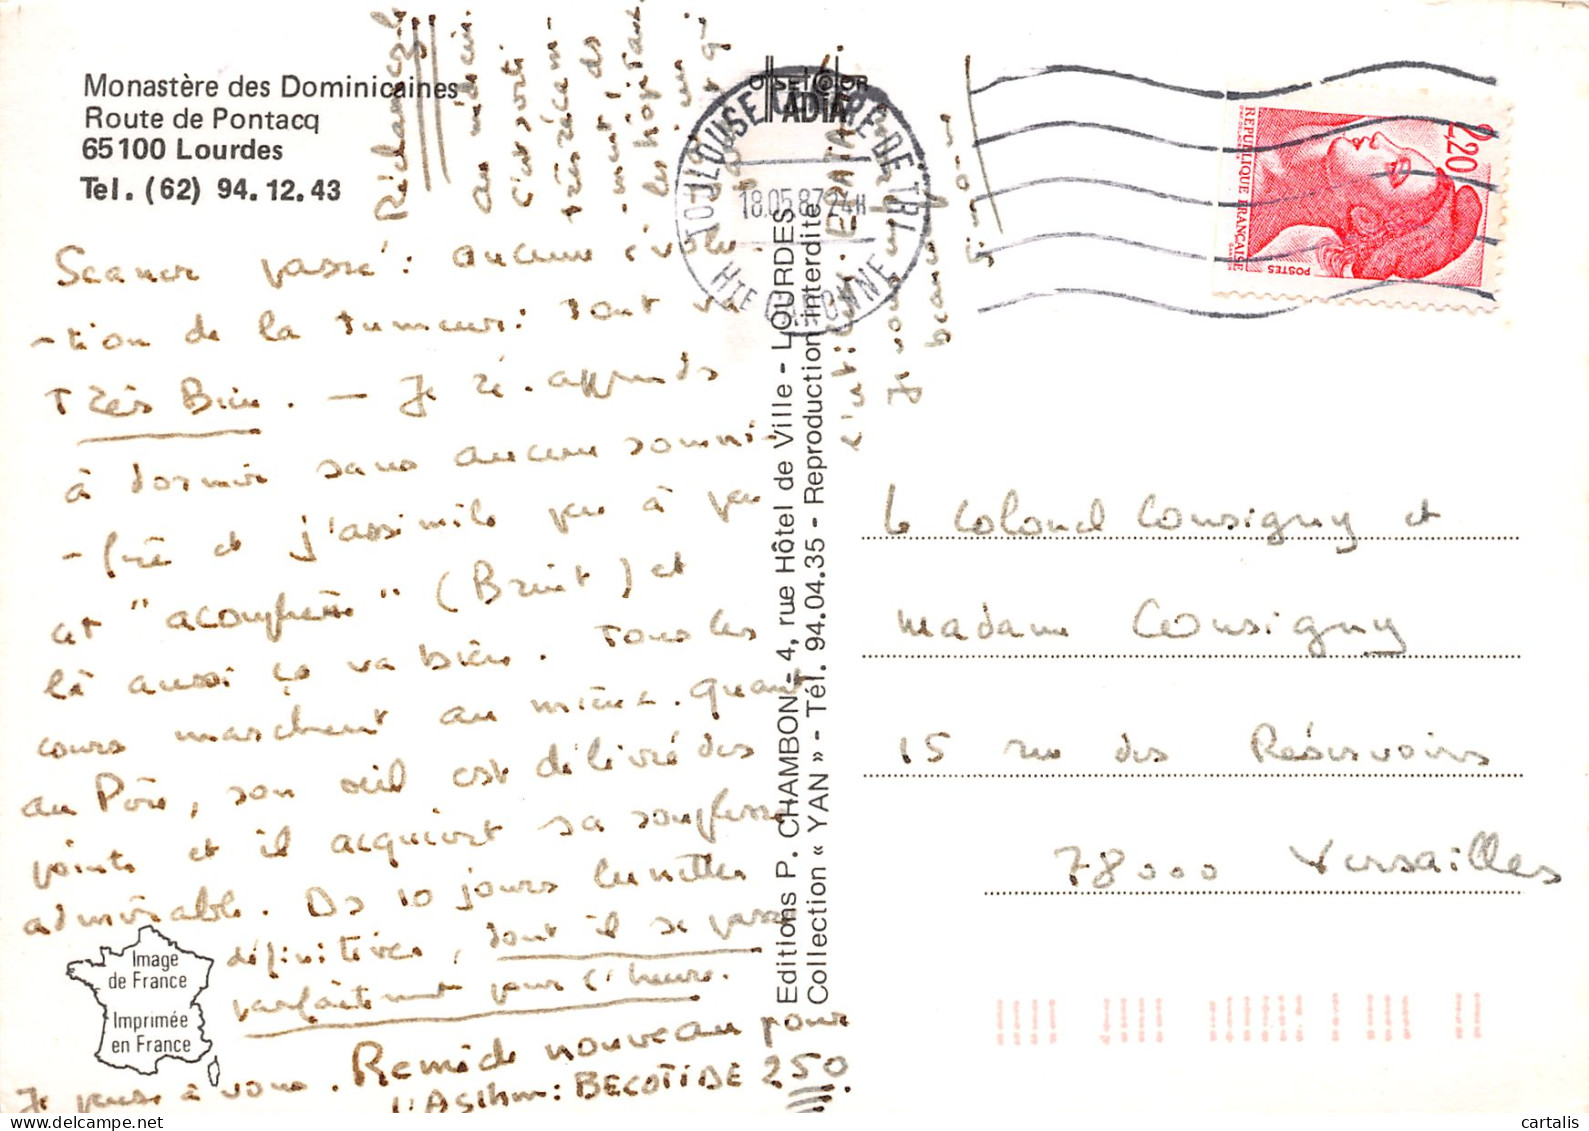 Monastère des Dominicaines
Route de Pontacq
65100 Lourdes
Tel. (62) 94.12.43
Réclamez-le
au médecin
c'est sorti
très récem-
-ment des
les hôpitaux
Scanner passé : aucune évolu-
-tion de la tumeur : tout va
très Bien. — Je ré-apprends
à dormir sans aucun somni-
-fère et j'assimile peu à peu
cet "acouphène" (Bruit) et
là aussi ça va bien. Tous les
cours marchent au mieux. Quant
au Père, son œil est délivré des
points et il acquiert sa souplesse
admirable. Ds 10 jours lunettes
définitives, dont il se passe
parfaitement pour l'heure.
Je pense à vous. Remède nouveau pour
l'Asthm : BECOTIDE 250
Image
de France
Imprimée
en France
OFFSET COLOR
ADIA
Editions P. CHAMBON - 4, rue Hôtel de Ville - LOURDES
Collection « YAN » - Tél. 94.04.35 - Reproduction interdite
TOULOUSE GARE-DE TRI
18.05.87 24H
HTE GARONNE
REPUBLIQUE FRANÇAISE
2,20
POSTES
le Colonel Consigny et
Madame Consigny
15 rue des Réservoirs
78000 Versailles
cartalis
www.delcampe.net